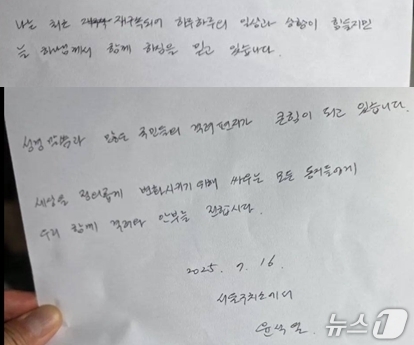 나는 최근 재구속되어 하루하루의 일상과 상황이 힘들지만
늘 하나님께서 함께 하심을 믿고 있습니다.
성경 말씀과 많은 국민들의 격려 편지가 큰 힘이 되고 있습니다.
세상을 정의롭게 변화시키기 위해 싸우는 모든 동지들에게
우리 함께 격려와 안부를 전합시다.
2025. 7. 16.
서울구치소에서
윤석열
뉴스1